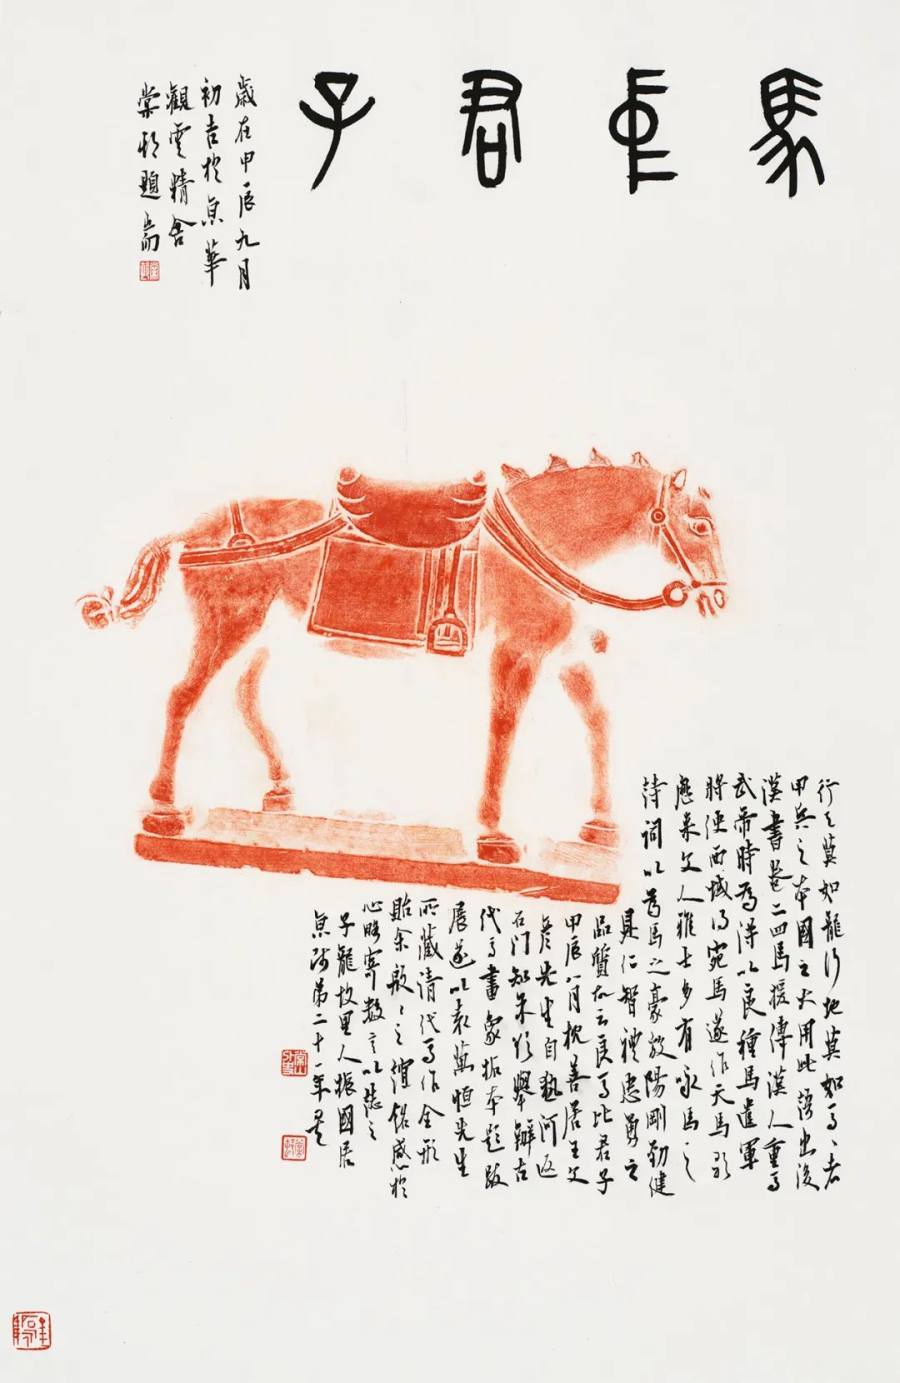 馬中君子
歲在甲辰九月
初吉於京華
觀雲精舍
棠邨題耑
行天莫如龍行地莫如馬馬者
甲兵之本國之大用此語出後
漢書卷二四馬援傳漢人重馬
武帝時為得以良種馬遣軍
將使西域得宛馬遂作天馬歌
歷來文人雅士多有詠馬之
詩詞以馬之豪放陽剛勁健
具仁智禮忠勇之
品質故云良馬比君子
甲辰八月枕善居主文
彥先生自熱河返
石門知朱欣舉辦古
代馬畫象拓本題跋
展遂以袁萬恒先生
所藏清代馬作全形
貽余歀歀之誼銘感於
心略寄數言以誌之
子龍故里人振國居
京師第二十一年矣